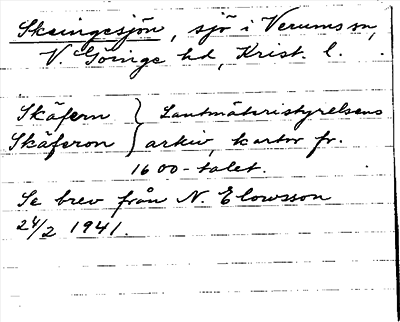 Skeingesjön, sjö i Verums sn,
V. Göinge hd, Krist. l.
Skäfern } Lantmäteristyrelsens
Skäferon } arkiv, kartor fr.
1600-talet.
Se brev från N. Elowsson
24/2 1941.